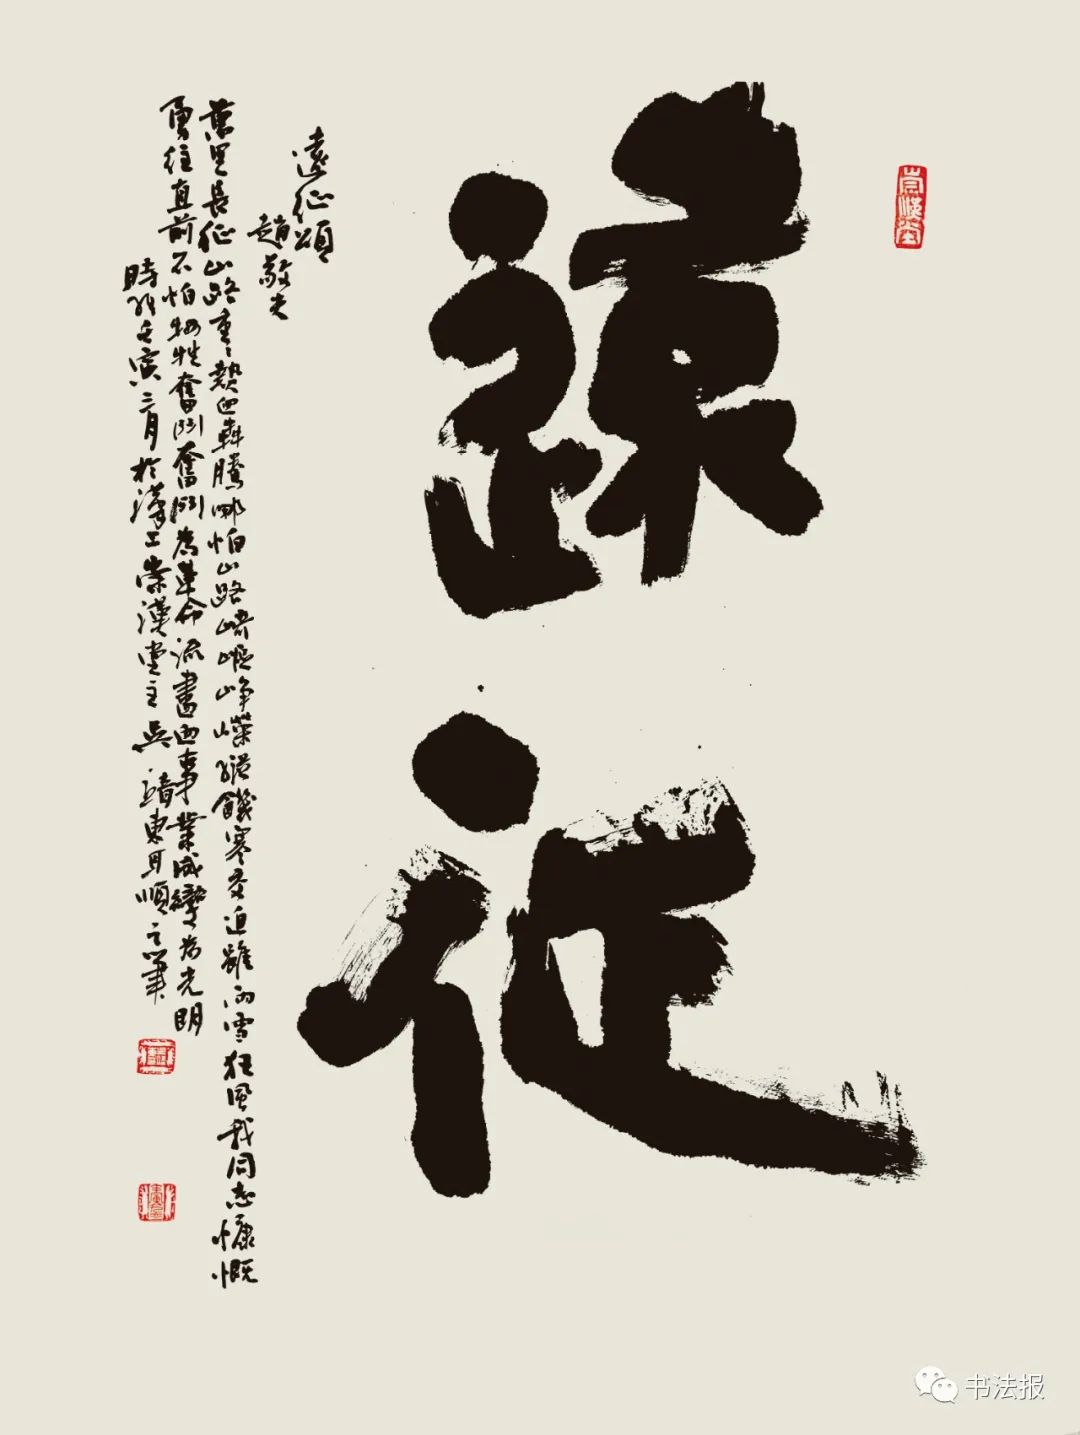 遠征
崇漢堂
遠征頌
趙敬夫
萬里長征山路重重熱血犇騰哪怕山路崎嶇崢嶸縱饑寒交迫雖雨雪狂風我同志慷慨
勇往直前不怕牺牲奮鬥奮鬥為革命流盡血事業成變為光明
時維壬寅三月於漢上崇漢堂主吳靖東耳順之筆
书法报